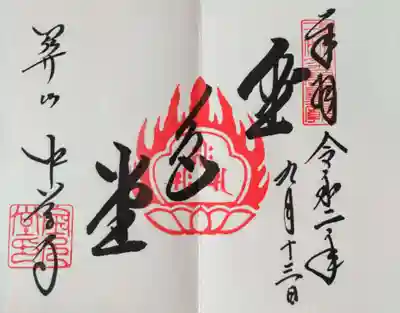 奉拝 令和二年
九月十三日
金色堂
関山 中尊寺